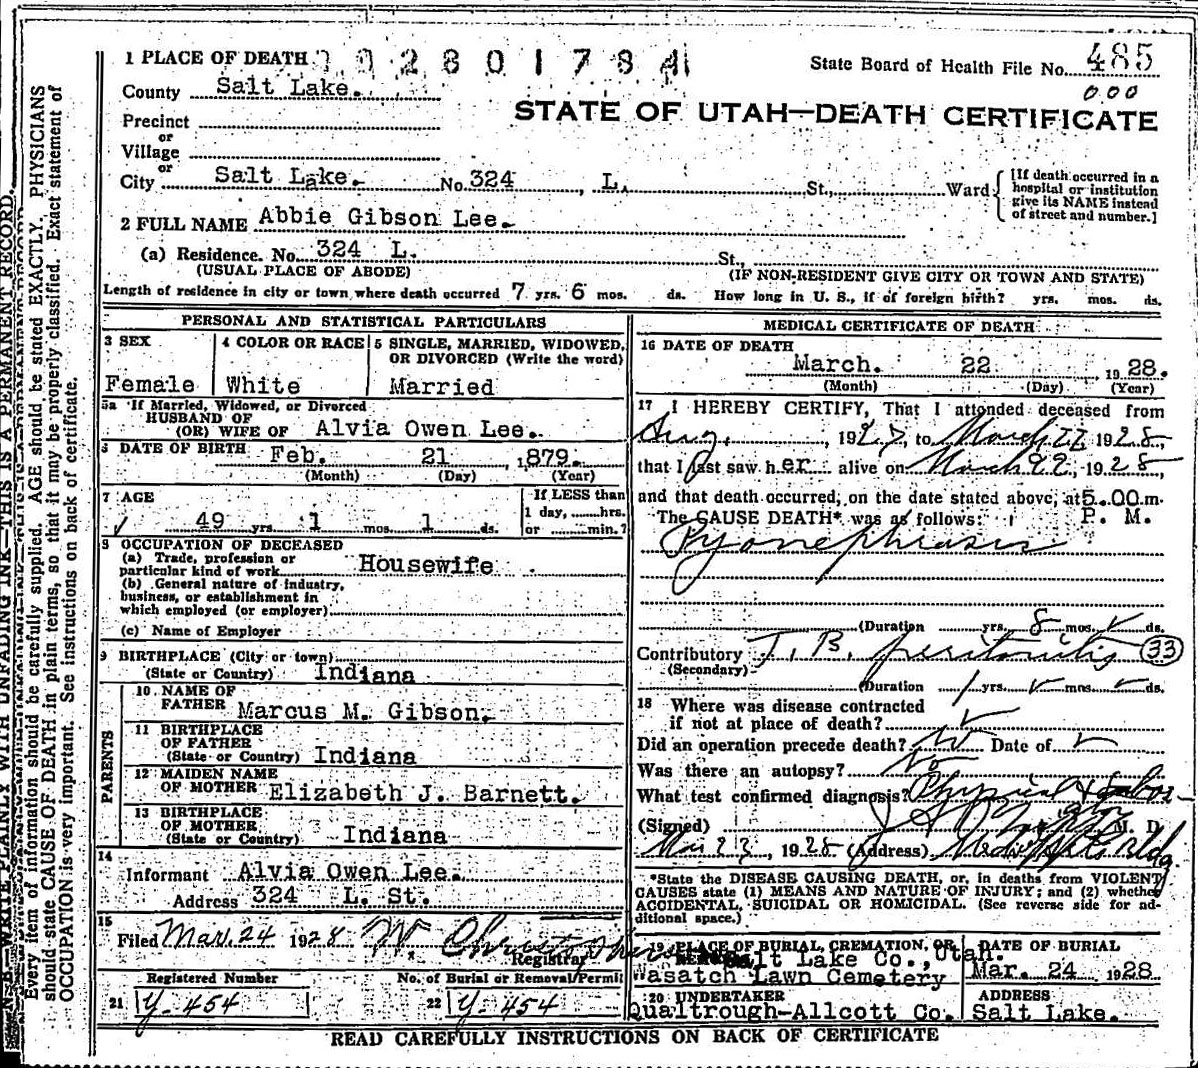 1 PLACE OF DEATH 0 0 2 8 0 1 7 8 4
State Board of Health File No. 485
000
County Salt Lake.
STATE OF UTAH—DEATH CERTIFICATE
Precinct
or
Village
or
City Salt Lake. No. 324 L. St., Ward
[If death occurred in a hospital or institution give its NAME instead of street and number.]
2 FULL NAME Abbie Gibson Lee.
(a) Residence. No. 324 L. St.,
(USUAL PLACE OF ABODE) (IF NON-RESIDENT GIVE CITY OR TOWN AND STATE)
Length of residence in city or town where death occurred 7 yrs. 6 mos. ds. How long in U. S., if of foreign birth? yrs. mos. ds.
PERSONAL AND STATISTICAL PARTICULARS
3 SEX
Female
4 COLOR OR RACE
White
5 SINGLE, MARRIED, WIDOWED, OR DIVORCED (Write the word)
Married
5a If Married, Widowed, or Divorced
HUSBAND OF
(OR) WIFE OF Alvia Owen Lee.
6 DATE OF BIRTH Feb. 21 ,1879.
(Month) (Day) (Year)
7 AGE
49 yrs. 1 mos. 1 ds.
If LESS than
1 day, ......hrs.
or ......min.?
8 OCCUPATION OF DECEASED
(a) Trade, profession or
particular kind of work Housewife .
(b) General nature of industry,
business, or establishment in
which employed (or employer)
(c) Name of Employer
9 BIRTHPLACE (City or town)
(State or Country) Indiana
PARENTS
10 NAME OF
FATHER Marcus M. Gibson.
11 BIRTHPLACE
OF FATHER
(State or Country) Indiana
12 MAIDEN NAME
OF MOTHER Elizabeth J. Barnett.
13 BIRTHPLACE
OF MOTHER
(State or Country) Indiana
14
Informant Alvia Owen Lee.
Address 324 L. St.
15
Filed Mar. 24 1928 W. Christopherson
Registrar
Registered Number No. of Burial or Removal Permit
21 Y-454 22 Y-454
MEDICAL CERTIFICATE OF DEATH
16 DATE OF DEATH
March. 22 , 1928.
(Month) (Day) (Year)
17 I HEREBY CERTIFY, That I attonded deceased from
Aug. , 1927, to March 22 1928
that I last saw her alive on March 22, 1928
and that death occurred, on the date stated above, at 5.00 m.
The CAUSE DEATH* was as follows: P. M.
Pyonephrasis
(Duration yrs. 8 mos. ds.
Contributory T. B. peritonitis 33
(Secondary)
(Duration 1 yrs. mos. ds.
18 Where was disease contracted
if not at place of death?
Did an operation precede death? Date of
Was there an autopsy? No
What test confirmed diagnosis? Physical & Labor-
(Signed) M. D.
Mar 23, 1928 (Address) Bldg.
*State the DISEASE CAUSING DEATH, or, in deaths from VIOLENT
CAUSES state (1) MEANS AND NATURE OF INJURY; and (2) whether
ACCIDENTAL, SUICIDAL OR HOMICIDAL. (See reverse side for ad-
ditional space.)
19 PLACE OF BURIAL, CREMATION, OR
Salt Lake Co., Utah.
Wasatch Lawn Cemetery
DATE OF BURIAL
Mar. 24 1928
20 UNDERTAKER
Qualtrough-Allcott Co.
ADDRESS
Salt Lake.
READ CAREFULLY INSTRUCTIONS ON BACK OF CERTIFICATE
N. B. WRITE PLAINLY WITH UNFADING INK—THIS IS A PERMANENT RECORD.
Every item of information should be carefully supplied. AGE should be stated EXACTLY. PHYSICIANS
should state CAUSE OF DEATH in plain terms, so that it may be properly classified. Exact statement of
OCCUPATION is very important. See instructions on back of certificate.